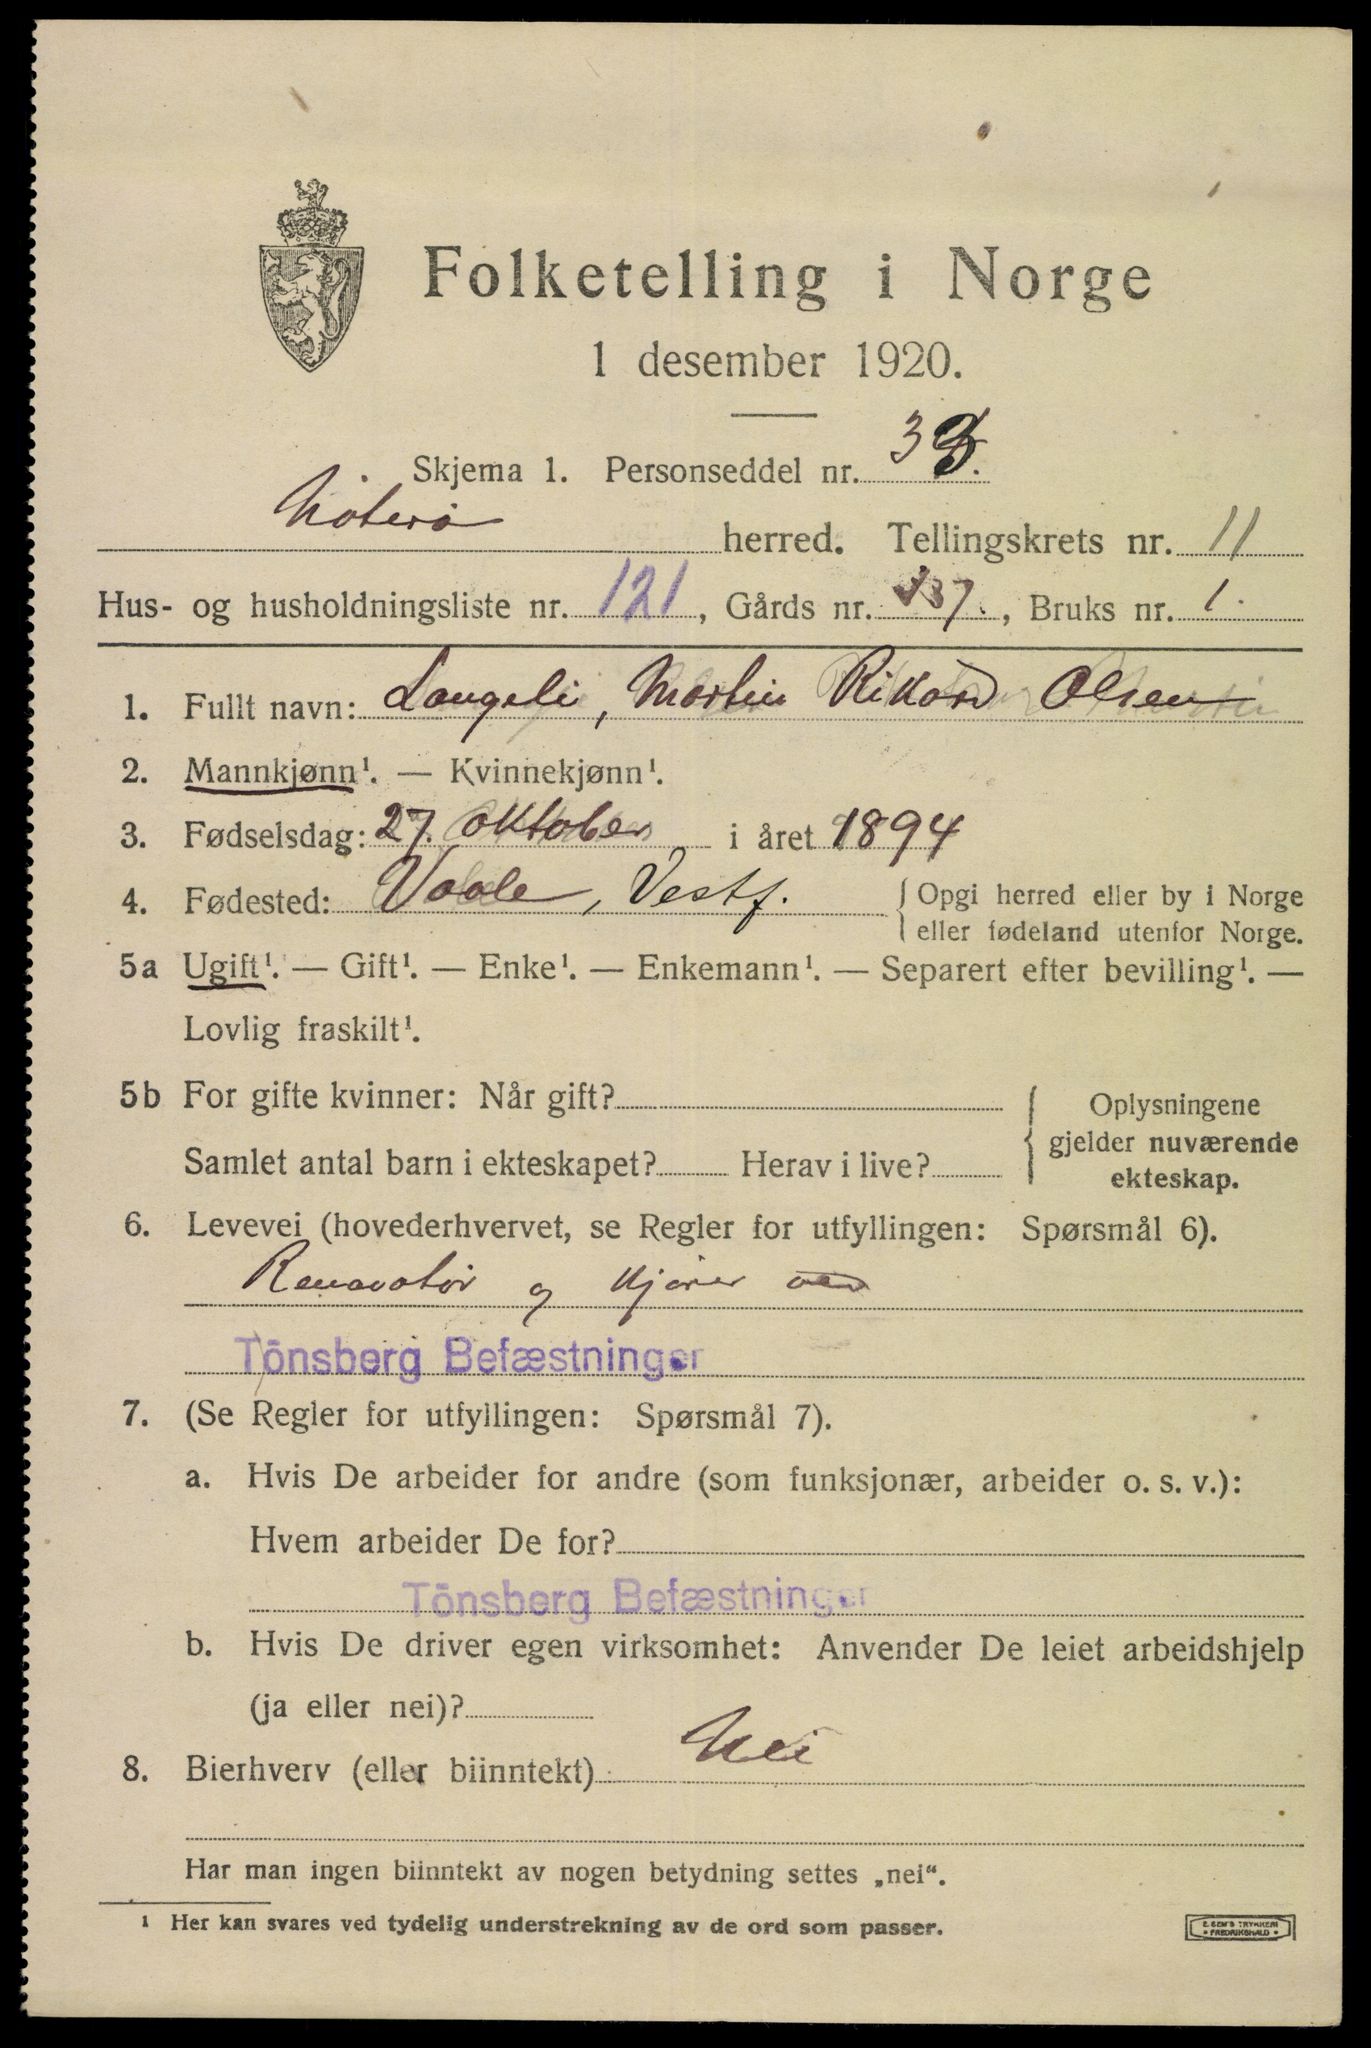 Folketelling i Norge
1 desember 1920.
Skjema 1. Personseddel nr. 33.
Nøterø herred. Tellingskrets nr. 11
Hus- og husholdningsliste nr. 121, Gårds nr. 137., Bruks nr. 1.
1. Fullt navn: Langeli, Martin Rikard Olsen
2. Mannkjønn¹. — Kvinnekjønn¹.
3. Fødselsdag: 27. oktober i året 1894
4. Fødested: Vaale, Vestf. { Opgi herred eller by i Norge
eller fødeland utenfor Norge.
5a Ugift¹. — Gift¹. — Enke¹. — Enkemann¹. — Separert efter bevilling¹. —
Lovlig fraskilt¹.
5b For gifte kvinner: Når gift?
Samlet antal barn i ekteskapet? Herav i live?
Oplysningene
gjelder nuværende
ekteskap.
6. Levevei (hovederhvervet, se Regler for utfyllingen: Spørsmål 6).
Renovatør og kjører ved
Tönsberg Befæstninger
7. (Se Regler for utfyllingen: Spørsmål 7).
a. Hvis De arbeider for andre (som funksjonær, arbeider o. s. v.):
Hvem arbeider De for?
Tönsberg Befæstninger
b. Hvis De driver egen virksomhet: Anvender De leiet arbeidshjelp
(ja eller nei)?
8. Bierhverv (eller biinntekt) Nei
Har man ingen biinntekt av nogen betydning settes „nei“.
¹ Her kan svares ved tydelig understrekning av de ord som passer.
E. SEM'S TRYKKERI
• FREDRIKSHALD •